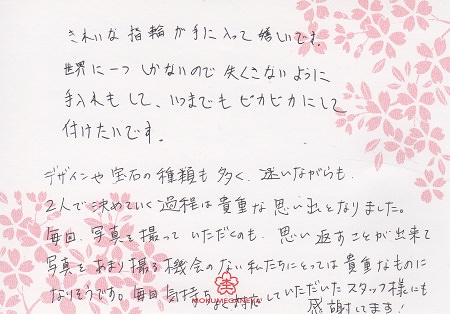 きれいな指輪が手に入って嬉しいです。
世界に一つしかないので失くさないように
手入れもして、いつまでもピカピカにして
付けたいです。
デザインや宝石の種類も多く、迷いながらも、
2人で決めていく過程は貴重な思い出となりました。
毎回、写真を撮っていただくのも、思い返すことが出来て
写真をあまり撮る機会のない私たちにとっては貴重なものに
なりそうです。毎回気持ちよく対応していただいたスタッフ様にも
感謝してます!
MOKUMEGANEYA